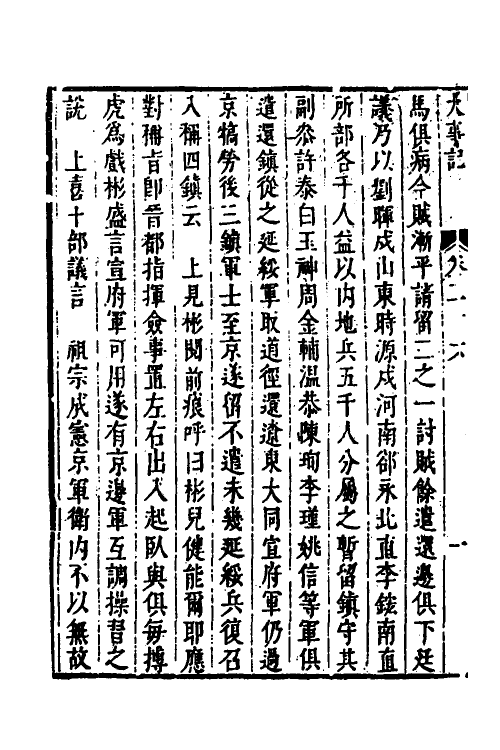 大事記 卷二十六 一
馬俱病今賊漸平請留二之一討賊餘遣還邊俱下廷
議乃以劉暉戍山東時源戍河南郤永北直李鋐南直
所部各千人益以內地兵五千人分屬之暫留鎮守其
副叅許泰白玉神周金輔溫恭陳珣李瑾姚信等軍俱
遣還鎮從之延綏軍取道徑還遼東大同宣府軍仍過
京犒勞後三鎮軍士至京遂留不遣未幾延綏兵復召
入稱四鎮云　上見彬閱前痕呼曰彬兒健能爾耶應
對稱旨卽晉都指揮僉事置左右出入起臥與俱每摶
虎爲戲彬盛言宣府軍可用遂有京邊軍互調操習之
說　上喜十部議言　祖宗成憲京軍衛內不以無故